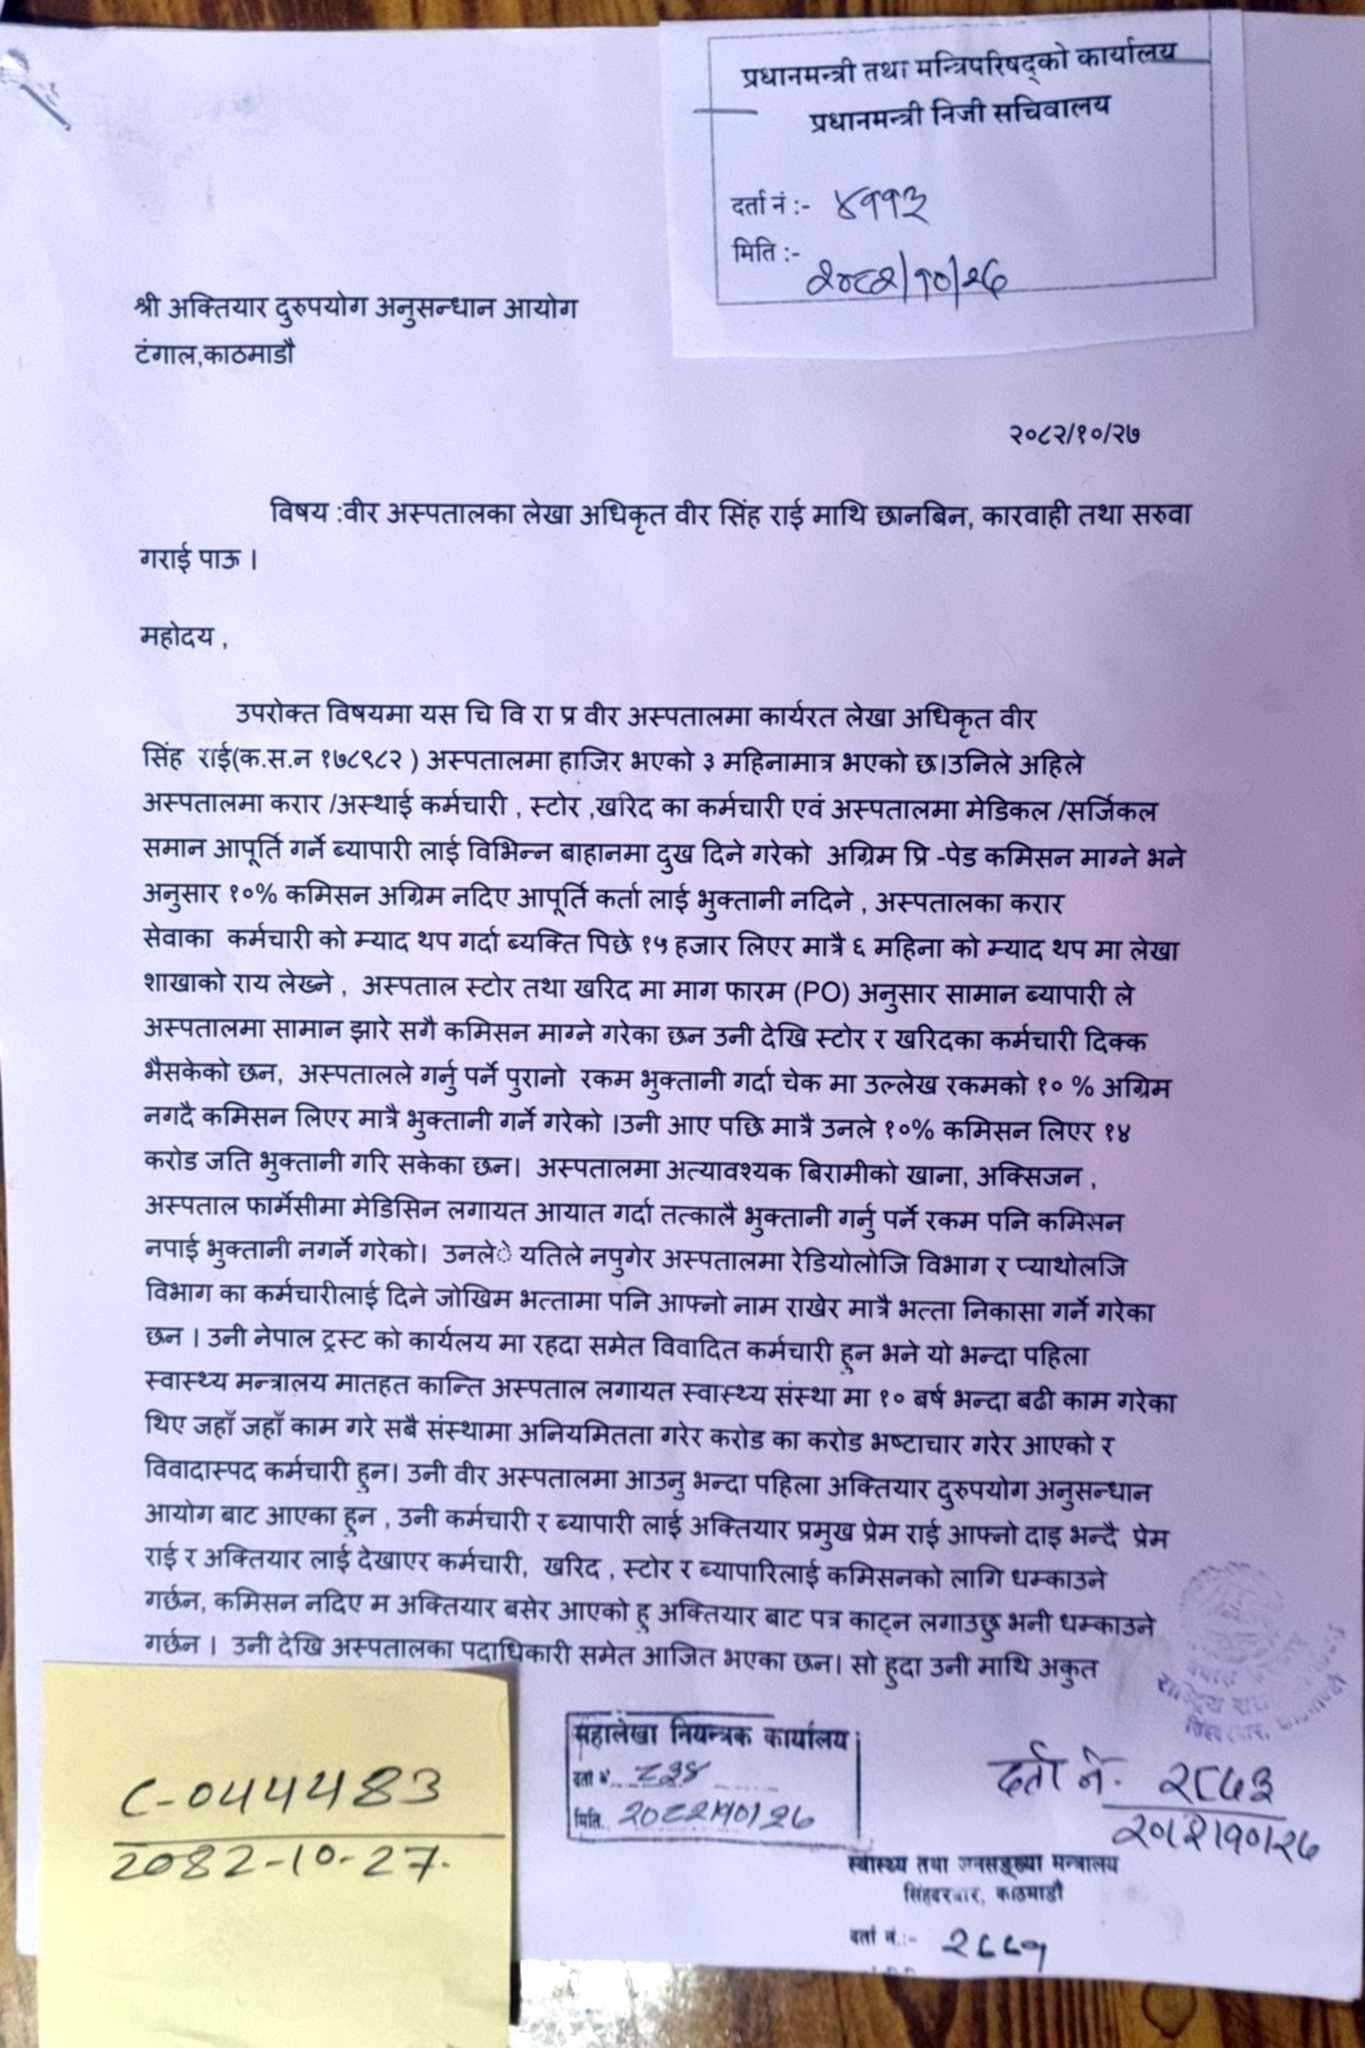 प्रधानमन्त्री तथा मन्त्रिपरिषद्को कार्यालय
प्रधानमन्त्री निजी सचिवालय
दर्ता नं :- ४११३
मिति :- २०८२/१०/२७
श्री अक्तियार दुरुपयोग अनुसन्धान आयोग
टंगाल,काठमाडौ
२०८२/१०/२७
विषय :वीर अस्पतालका लेखा अधिकृत वीर सिंह राई माथि छानबिन, कारवाही तथा सरुवा
गराई पाऊ ।
महोदय ,
उपरोक्त विषयमा यस चि वि रा प्र वीर अस्पतालमा कार्यरत लेखा अधिकृत वीर
सिंह राई(क.स.न १७८९८२ ) अस्पतालमा हाजिर भएको ३ महिनामात्र भएको छ।उनिले अहिले
अस्पतालमा करार /अस्थाई कर्मचारी , स्टोर ,खरिद का कर्मचारी एवं अस्पतालमा मेडिकल /सर्जिकल
समान आपूर्ति गर्ने ब्यापारी लाई विभिन्न बाहानमा दुख दिने गरेको अग्रिम प्रि -पेड कमिसन माग्ने भने
अनुसार १०% कमिसन अग्रिम नदिए आपूर्ति कर्ता लाई भुक्तानी नदिने , अस्पतालका करार
सेवाका कर्मचारी को म्याद थप गर्दा ब्यक्ति पिछे १५ हजार लिएर मात्रै ६ महिना को म्याद थप मा लेखा
शाखाको राय लेख्ने , अस्पताल स्टोर तथा खरिद मा माग फारम (PO) अनुसार सामान ब्यापारी ले
अस्पतालमा सामान झारे सगै कमिसन माग्ने गरेका छन उनी देखि स्टोर र खरिदका कर्मचारी दिक्क
भैसकेको छन, अस्पतालले गर्नु पर्ने पुरानो रकम भुक्तानी गर्दा चेक मा उल्लेख रकमको १० % अग्रिम
नगदै कमिसन लिएर मात्रै भुक्तानी गर्ने गरेको ।उनी आए पछि मात्रै उनले १०% कमिसन लिएर १४
करोड जति भुक्तानी गरि सकेका छन। अस्पतालमा अत्यावश्यक बिरामीको खाना, अक्सिजन ,
अस्पताल फार्मेसीमा मेडिसिन लगायत आयात गर्दा तत्कालै भुक्तानी गर्नु पर्ने रकम पनि कमिसन
नपाई भुक्तानी नगर्ने गरेको। उनलेे यतिले नपुगेर अस्पतालमा रेडियोलोजि विभाग र प्याथोलजि
विभाग का कर्मचारीलाई दिने जोखिम भत्तामा पनि आफ्नो नाम राखेर मात्रै भत्ता निकासा गर्ने गरेका
छन । उनी नेपाल ट्रस्ट को कार्यलय मा रहदा समेत विवादित कर्मचारी हुन भने यो भन्दा पहिला
स्वास्थ्य मन्त्रालय मातहत कान्ति अस्पताल लगायत स्वास्थ्य संस्था मा १० बर्ष भन्दा बढी काम गरेका
थिए जहाँ जहाँ काम गरे सबै संस्थामा अनियमितता गरेर करोड का करोड भष्टाचार गरेर आएको र
विवादास्पद कर्मचारी हुन। उनी वीर अस्पतालमा आउनु भन्दा पहिला अक्तियार दुरुपयोग अनुसन्धान
आयोग बाट आएका हुन , उनी कर्मचारी र ब्यापारी लाई अक्तियार प्रमुख प्रेम राई आफ्नो दाइ भन्दै प्रेम
राई र अक्तियार लाई देखाएर कर्मचारी, खरिद , स्टोर र ब्यापारिलाई कमिसनको लागि धम्काउने
गर्छन, कमिसन नदिए म अक्तियार बसेर आएको हु अक्तियार बाट पत्र काट्न लगाउछु भनी धम्काउने
गर्छन । उनी देखि अस्पतालका पदाधिकारी समेत आजित भएका छन। सो हुदा उनी माथि अकुत
महालेखा नियन्त्रक कार्यालय
दर्ता नं.
मिति. २०८२।१०।२७
दर्ता नं. २८७३
२०८२।१०।२७
स्वास्थ्य तथा जनसङ्ख्या मन्त्रालय
सिंहदरवार, काठमाडौं
दर्ता नं.:-
C-044483
2082-10-27.